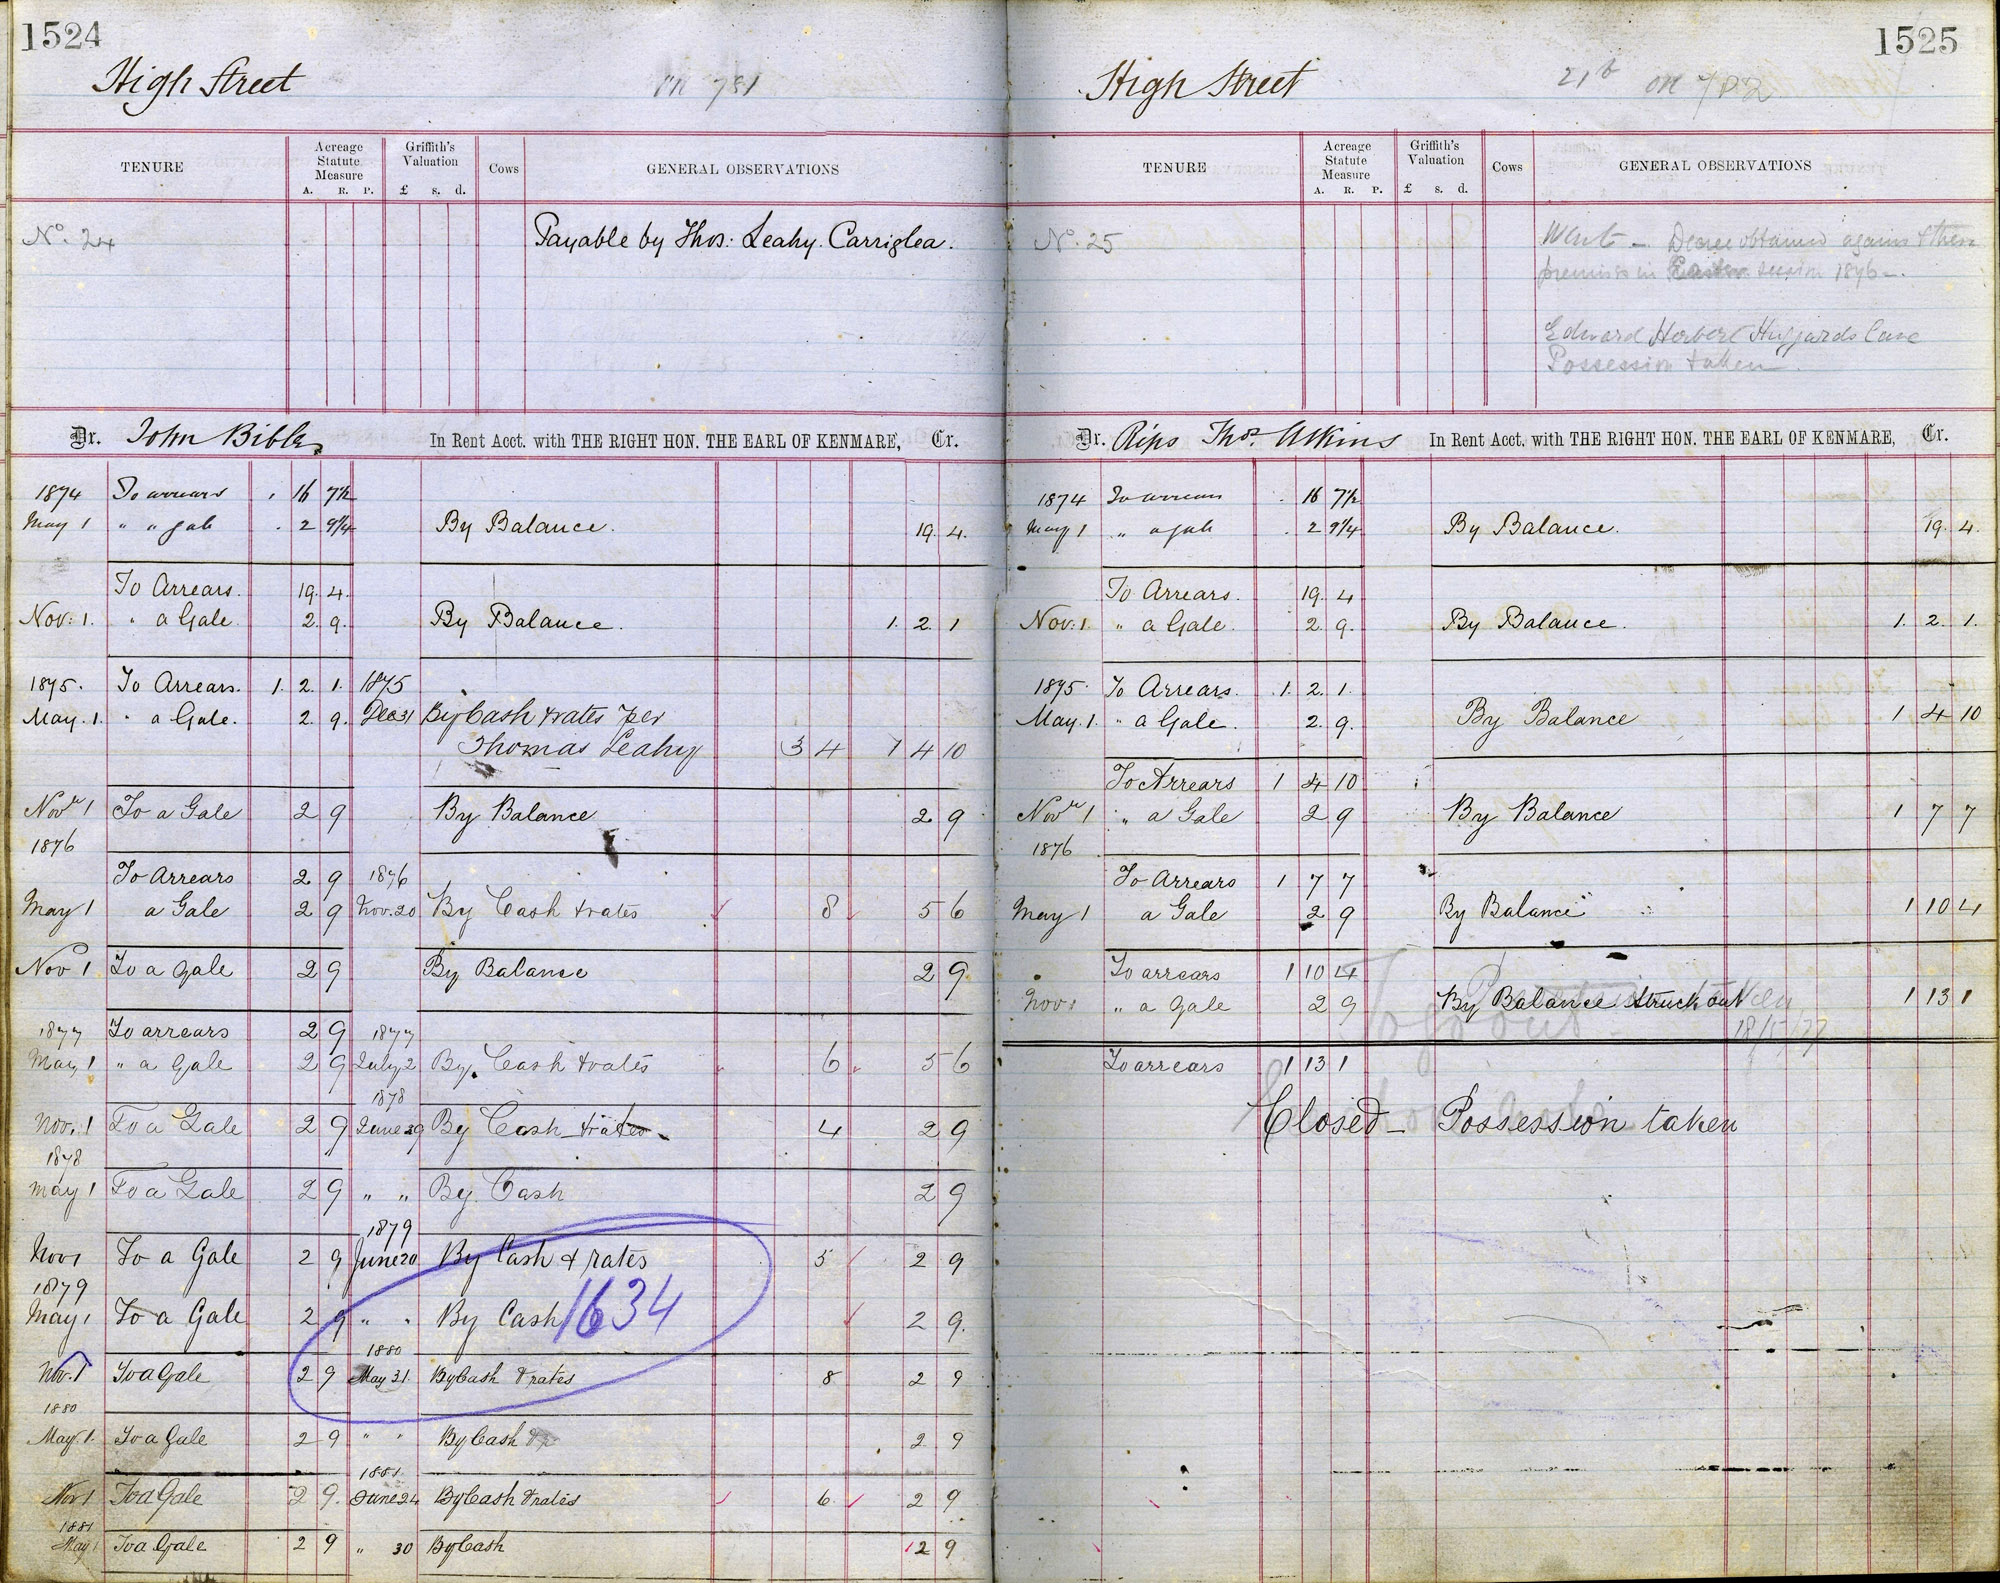 1524
High Street
on 781
TENURE
Acreage Statute Measure
A. R. P.
Griffith's Valuation
£ s. d.
Cows
GENERAL OBSERVATIONS
No. 24
Payable by Thos: Leahy. Carriglea.
Dr. John Bible In Rent Acct. with THE RIGHT HON. THE EARL OF KENMARE, Cr.
1874 To arrears . 16 7½
May 1 " " gale . 2 9¼ By Balance. 19. 4.
To Arrears. 19. 4.
Nov: 1. " a Gale. 2. 9. By Balance. 1. 2. 1
1875. To Arrears. 1. 2. 1. 1875
May. 1. " a Gale. 2. 9. Dec 31 By Cash & rates per
Thomas Leahy 3 4 1 4 10
Novr 1 To a Gale 2 9 By Balance 2 9
1876
To Arrears 2 9 1876
May 1 a Gale 2 9 Nov. 20 By Cash & rates 8 5 6
Nov 1 To a gale 2 9 By Balance 2 9
1877 To arrears 2 9 1877
May 1 " a Gale 2 9 July 2 By Cash & rates 6 5 6
1878
Nov. 1 To a Gale 2 9 June 29 By Cash & rates 4 2 9
1878
May 1 To a Gale 2 9 " " By Cash 2 9
1879
Nov 1 To a Gale 2 9 June 20 By Cash & rates 5 2 9
1879
May 1 To a Gale 2 9 " " By Cash 2 9.
1634
1880
Nov. 1 To a Gale 2 9 May 31. By Cash & rates 8 2 9
1880
May. 1. To a Gale 2 9 " " By Cash 2 9
1881
Nov 1 To a Gale 2 9. June 24 By Cash & rates 6. 2 9
1881
May 1 To a Gale 2 9 " 30 By Cash 2 9
1525
High Street
21 b on 782
TENURE
Acreage Statute Measure
A. R. P.
Griffith's Valuation
£ s. d.
Cows
GENERAL OBSERVATIONS
No. 25
Decree obtained against these
premises in Easter session 1876 -.
Edward Herbert Huggards Case
Possession taken.
Dr. Reps Thos. Atkins In Rent Acct. with THE RIGHT HON. THE EARL OF KENMARE, Cr.
1874 To arrears . 16 7½
May 1 " a gale . 2 9¼ By Balance. 19. 4.
To Arrears. 19. 4
Nov: 1. " a Gale. 2 9. By Balance. 1. 2. 1.
1875. To Arrears. 1. 2. 1.
May. 1. " a Gale. 2. 9. By Balance 1 4 10
To Arrears 1 4 10
Novr 1 " a Gale 2 9 By Balance 1 7 7
1876
To Arrears 1 7 7
May 1 a Gale 2 9 By Balance 1 10 4
To arrears 1 10 4
Nov 1 " a gale 2 9 By Balance Struck out 1 13 1
To go out
18/5/77
To arrears 1 13 1
Closed - Possession taken